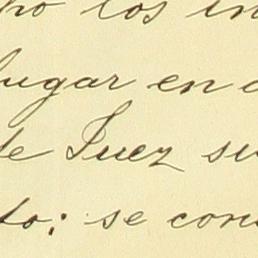 los in
lugar en
de Juez su
to: se con